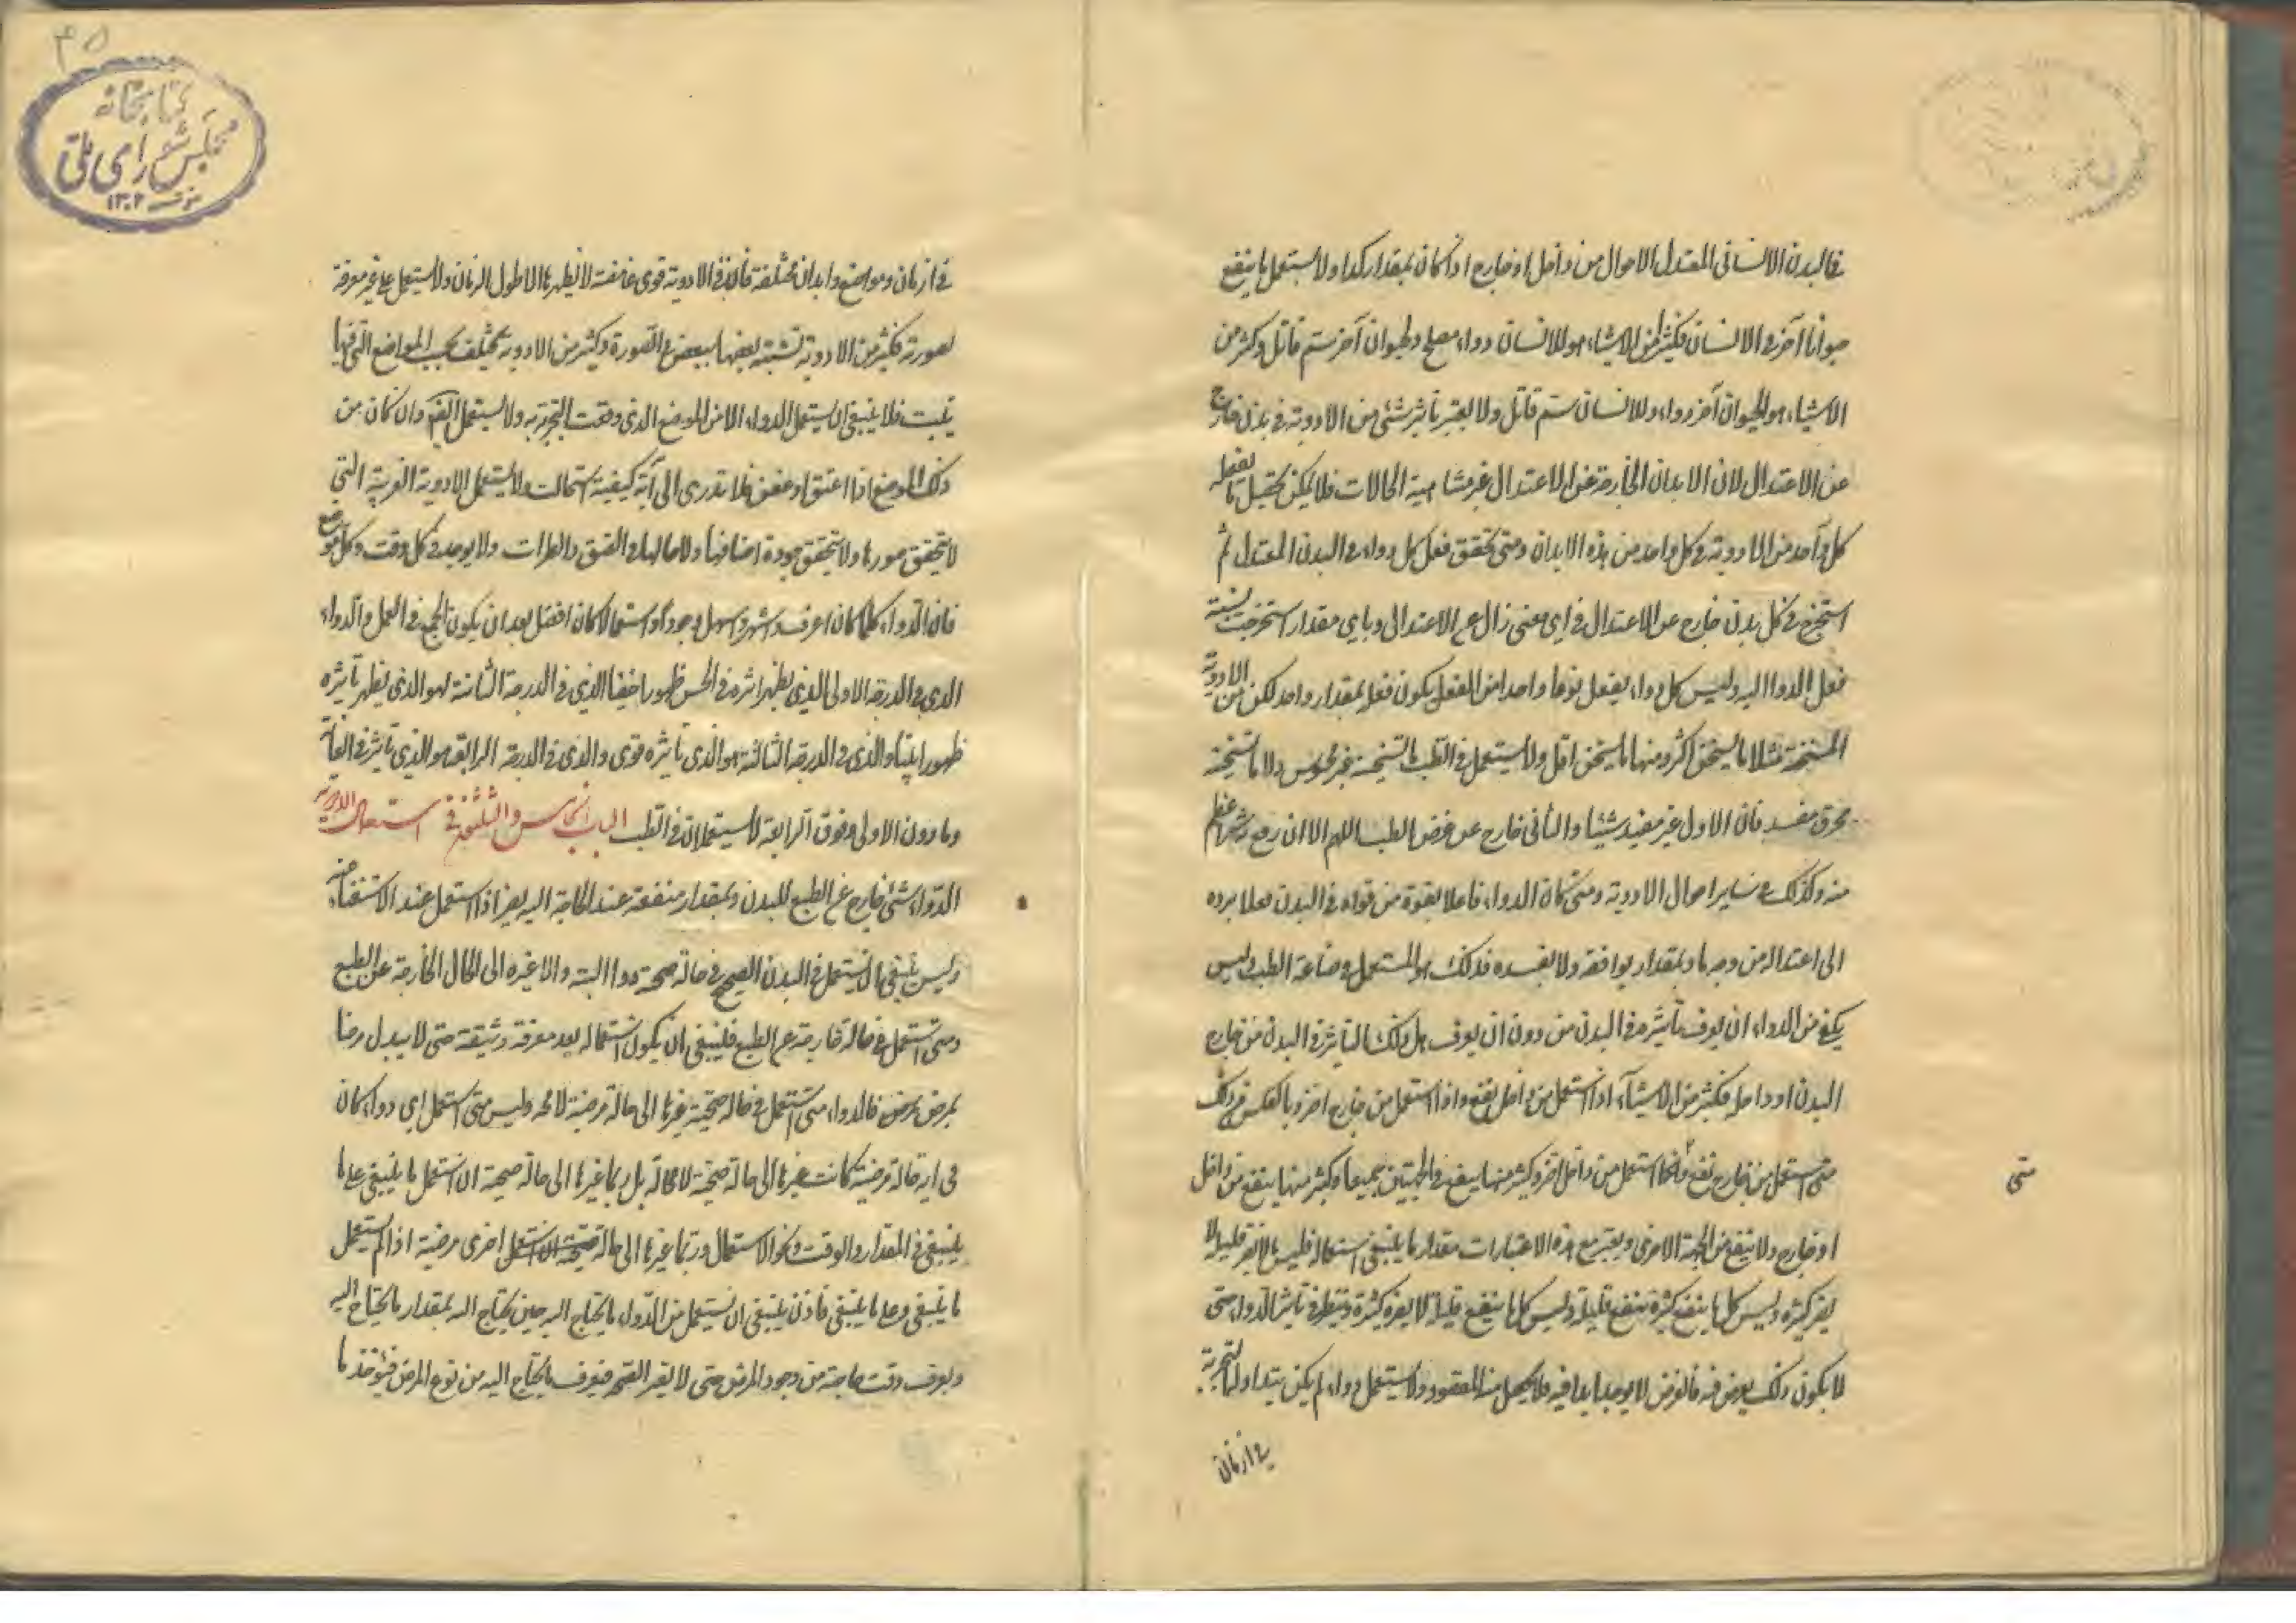 فى البدن الانسانى المعتدل الاحوال من داخل او خارج اذا كان بمقدار كذا ولا يستعمل ما ينفع
حيوانا آخر فى الانسان فكثير من الاشياء هو للانسان دواء مصلح ولحيوان آخر سم قاتل وكثير من
الاشياء هو لحيوان آخر دواء وللانسان سم قاتل ولا يعتبر تأثير شئ من الادوية فى بدن خارج
عن الاعتدال لان الابدان الخارجة عن الاعتدال غير متناهية الحالات فلا يمكن تحصيل ما يفعله
كل واحد من الادوية فى كل واحد من هذه الابدان ومتى تحقق فعل كل دواء فى البدن المعتدل ثم
استخرج فى كل بدن خارج عن الاعتدال فى اى معنى زال عن الاعتدال وباى مقدار استخرجت نسبة
فعل الدواء اليه وليس كل دواء يفعل نوعا واحدا من الفعل يكون فعله بمقدار واحد لكن من الادوية
المسخنة مثلا ما يسخن اكثر ومنها ما يسخن اقل ولا يستعمل فى الطب ما تسخينه غير محسوس ولا ما تسخينه
محرق مفسد فان الاول غير مفيد شيئا والثانى خارج عن غرض الطب اللهم الا ان دفع شرا عظم
منه وكذلك فى ساير احوال الادوية ومتى كان الدواء فاعلا بقوة من قواه فى البدن فعلا يرده
الى اعتداله من وجه ما وبمقدار يوافقه ولا يفسده فذلك هو المستعمل فى صناعة الطب وليس
يكفى من الدواء ان يعرف تأثيره فى البدن من دون ان يعرف هل ذلك التأثير فى البدن من خارج
البدن او داخله فكثير من الاشياء اذا استعمل من داخل نفع واذا استعمل من خارج اضر وبالعكس فى ذلك
متى
متى استعمل من خارج نفع واذا استعمل من داخل اضر وكثير منها ينفع فى الجهتين جميعا وكثير منها ينفع من داخل
او خارج ولا ينفع من الجهة الاخرى ويعتبر مع هذه الاعتبارات مقدار ما ينبغى استعماله فليس ما لا يضر قليله لا
يضر كثيره وليس كل ما ينفع كثيره ينفع قليله وليس كل ما ينفع قليله لا يضره كثيره وينظر فى تأثير الدواء حتى
لا يكون ذلك بعرض فيه فالعرض لا يوجد ابدا فيه فلا يحصل منه المقصود ولا يستعمل دواء لم يكن يتداوله التجربة
فى ازمان
٣٥
كتابخانه
مجلس شوراى ملى
١٣٠٢
فى ازمان ومواضع وابدان مختلفة فان فى الادوية قوى غامضة لا يظهرها الا طول الزمان ولا يستعمل على غير معرفة
بصورته فكثير من الادوية تشتبه بعضها ببعض فى الصورة وكثير من الادوية تختلف بحسب المواضع التى فيها
ينبت فلا ينبغى ان يستعمل الدواء الا من الموضع الذى وقعت التجربة به ولا يستعمل القديم وان كان من
ذلك الموضع اذا اعتق او عفن فلا تدرى الى اية كيفية استحالت ولا يستعمل الادوية الغريبة التى
لا يتحقق صورها ولا يتحقق جودة اصنافها ولا حالها فى العتق والطراة ولا يوجد فى كل وقت وكل موضع
فان الدواء كلما كان اعرف واشهر واسهل وجودا واستعمالا كان افضل بعد ان يكون انجح فى العمل والدواء
الذى فى الدرجة الاولى الذى يظهر اثره فى الحس ظهورا خفيا الذى فى الدرجة الثانية هو الذى يظهر تأثيره
ظهورا بينا والذى فى الدرجة الثالثة هو الذى تأثيره قوى والذى فى الدرجة الرابعة هو الذى تأثيره فى الغاية
وما دون الاولى وفوق الرابعة لا يستعملان فى الطب الباب الخامس والثلثون فى استعمال الادوية
الدواء شئ خارج عن الطبع للبدن وبمقدار منفعته عند الحاجة اليه يضر اذا استعمل عند الاستغناء عنه
وليس ينبغى ان يستعمل فى البدن الصحيح فى حالة صحته دواء البتة والا غيره الى الحال الخارجة عن الطبع
ومتى استعمل فى حالة خارجة عن الطبع فلينبغى ان يكون استعماله بعد معرفة وثيقة حتى لا يبدل مرضا
بمرض فالدواء متى استعمل فى حالة صحية غيرها الى حالة مرضية لا محة وليس متى استعمل اى دواء كان
فى اية حالة مرضية كانت غيرها الى حالة صحية لا محالة بل ربما غيرها الى حالة صحية ان استعمل ما ينبغى على ما
ينبغى فى المقدار والوقت ونحو الاستعمال وربما غيرها الى حالة صحية ان استعمل اخرى مرضية اذا لم يستعمل
ما ينبغى وعلى ما ينبغى فاذن ينبغى ان يستعمل من الدواء ما يحتاج اليه حين يحتاج اليه بمقدار ما يحتاج اليه
ويعرف وقت حاجته من وجود المرض حتى لا يضر الصحة فيعرف ما يحتاج اليه من نوع المرض فيؤخذ ما